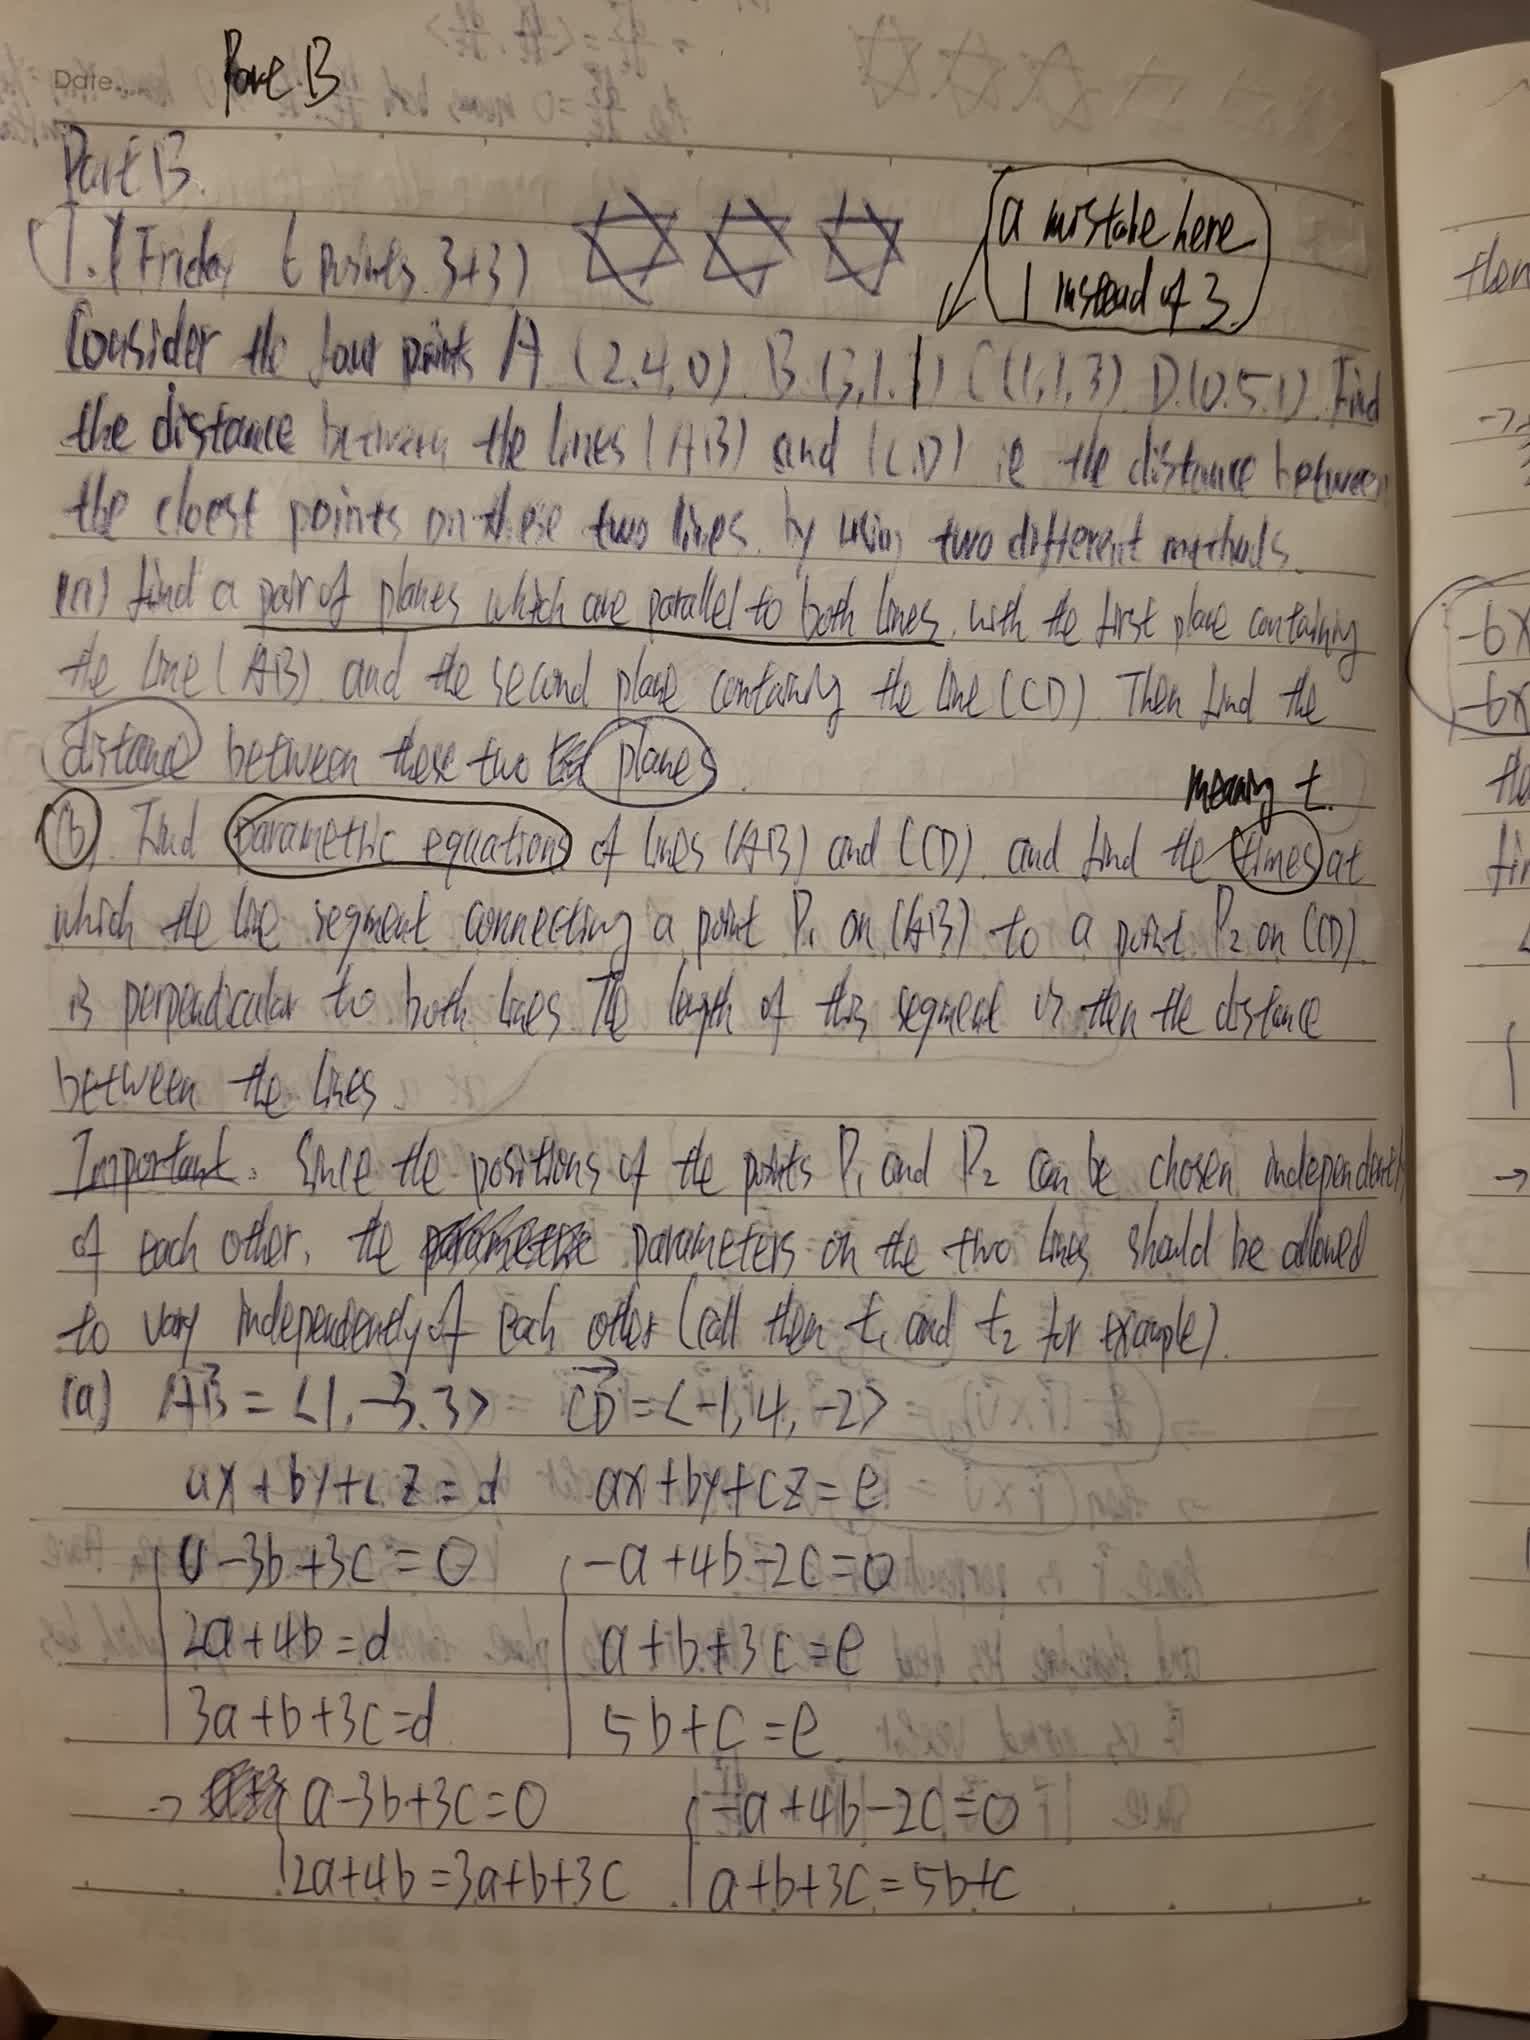 Date.....
Part B
Part B.
1. (Friday 6 points. 3+3)
a mistake here
1 instead of 3.
Consider the four points A (2,4,0). B (3,1,1) C(1,1,3). D.(0.5.1). Find
the distance between the lines (AB) and (CD) ie the distance between
the cloest points on these two lines. by using two different methods.
(a) find a pair of planes which are parallel to both lines, with the first plane containing
the line (AB) and the second plane containing the line (CD) Then find the
distance between these two planes.
meaning t.
(b). Find parametric equations of lines (AB) and (CD) and find the times at
which the line segment connecting a point P₁ on (AB) to a point P₂ on (CD)
is perpendicular to both lines. The length of this segment is then the distance
between the lines.
Important. Since the positions of the points P₁ and P₂ can be chosen independently
of each other, the parameters on the two lines should be allowed
to vary independently of each other (call them t₁ and t₂ for example).
(a) AB = <1, -3, 3> CD = <-1, 4, -2>
ax + by + cz = d ax + by + cz = e
a - 3b + 3c = 0 -a + 4b - 2c = 0
2a + 4b = d a + b + 3c = e
3a + b + 3c = d 5b + c = e
→ a - 3b + 3c = 0 -a + 4b - 2c = 0
2a + 4b = 3a + b + 3c a + b + 3c = 5b + c
-6x
-6x